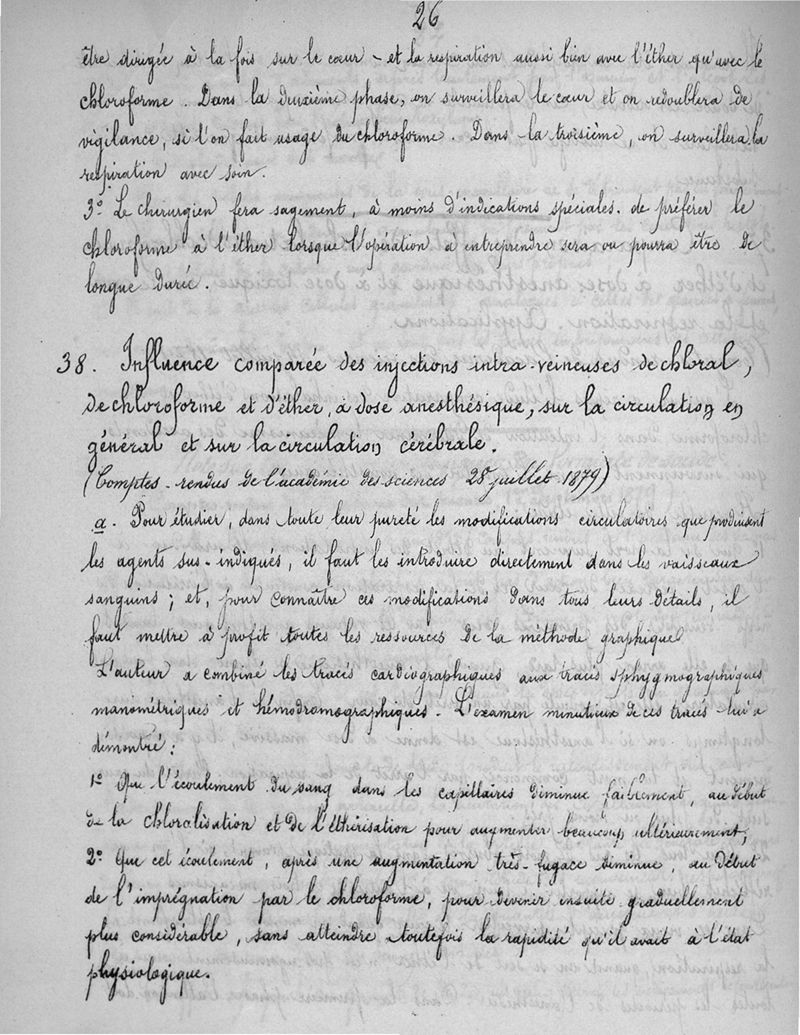 26
être dirigée à la fois sur le cœur - et la respiration aussi bien avec l'éther qu'avec le
chloroforme. Dans la deuxième phase, on surveillera le cœur et on redoublera de
vigilance, si l'on fait usage du chloroforme. Dans la troisième, on surveillera la
respiration avec soin.
3º Le chirurgien fera sagement, à moins d'indications spéciales. de préférer le
chloroforme à l'éther lorsque l'opération à entreprendre sera ou pourra être de
longue durée.
38. Influence comparée des injections intra-veineuses de chloral,
de chloroforme et d'éther, à dose anesthésique, sur la circulation en
général et sur la circulation cérébrale.
(Comptes-rendus de l'académie des sciences 28 juillet 1879)
a. Pour étudier, dans toute leur pureté les modifications circulatoires que produisent
les agents sus-indiqués, il faut les introduire directement dans les vaisseaux
sanguins; et, pour connaître ces modifications dans tous leurs détails, il
faut mettre à profit toutes les ressources de la méthode graphique
L'auteur a combiné les tracés cardiographiques aux tracés sphygmographiques
manométriques et hémodromographiques. L'examen minutieux de ces tracés lui a
démontré:
1º Que l'écoulement du sang dans les capillaires diminue faiblement, au début
de la chloralisation et de l'éthérisation pour augmenter beaucoup ultérieurement;
2º Que cet écoulement, après une augmentation très-fugace diminue, au début
de l'imprégnation par le chloroforme, pour devenir ensuite graduellement
plus considérable, sans atteindre toutefois la rapidité qu'il avait à l'état
physiologique.